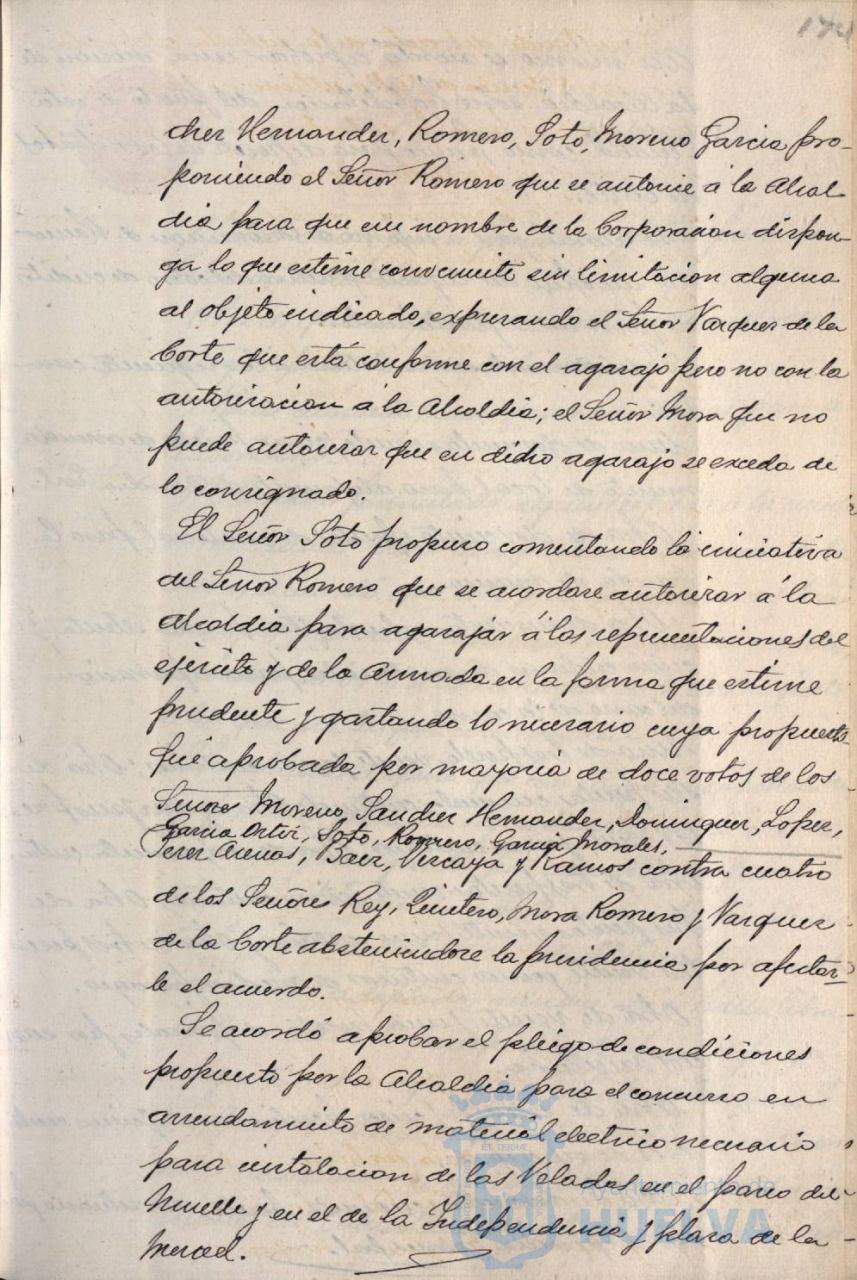 174
cher Hernander, Romero, Soto, Moreno Garcia pro-
poniendo el Señor Romero que se autorice á la Alcal
dia para que en nombre de la Corporacion dispon-
ga lo que estime conveniente sin limitacion alguna
al objeto indicado, expresando el Señor Vazquez de la
Corte que está conforme con el agasajo pero no con la
autorizacion á la Alcaldia; el Señor Mora que no
puede autorizar que en dicho agasajo se exceda de
lo consignado.
El Señor Soto propuso comentando la iniciativa
del Señor Romero que se acordase autorizar á la
Alcaldia para agasajar á las representaciones del
ejército y de la Armada en la forma que estime
prudente y gastando lo necesario cuya propuesta
fué aprobada por mayoria de doce votos de los
Señores Moreno, Sancher Hernander, Dominguez, Lopez,
Garcia Ortiz, Soto, Romero, Garcia Morales,
Perez Arenas, Baez, Vizcaya y Ramos contra cuatro
de los Señores Rey, Quintero, Mora Romero y Vazquez
de la Corte absteniendose la presidencia por afectar-
le el acuerdo.
Se acordó aprobar el pliego de condiciones
propuesto por la Alcaldia para el concurso en
arrendamiento de material electrico necesario
para instalacion de las Veladas en el paseo del
Muelle y en el de la Independencia y plaza de la
Merced.
Ayuntamiento de
HUELVA